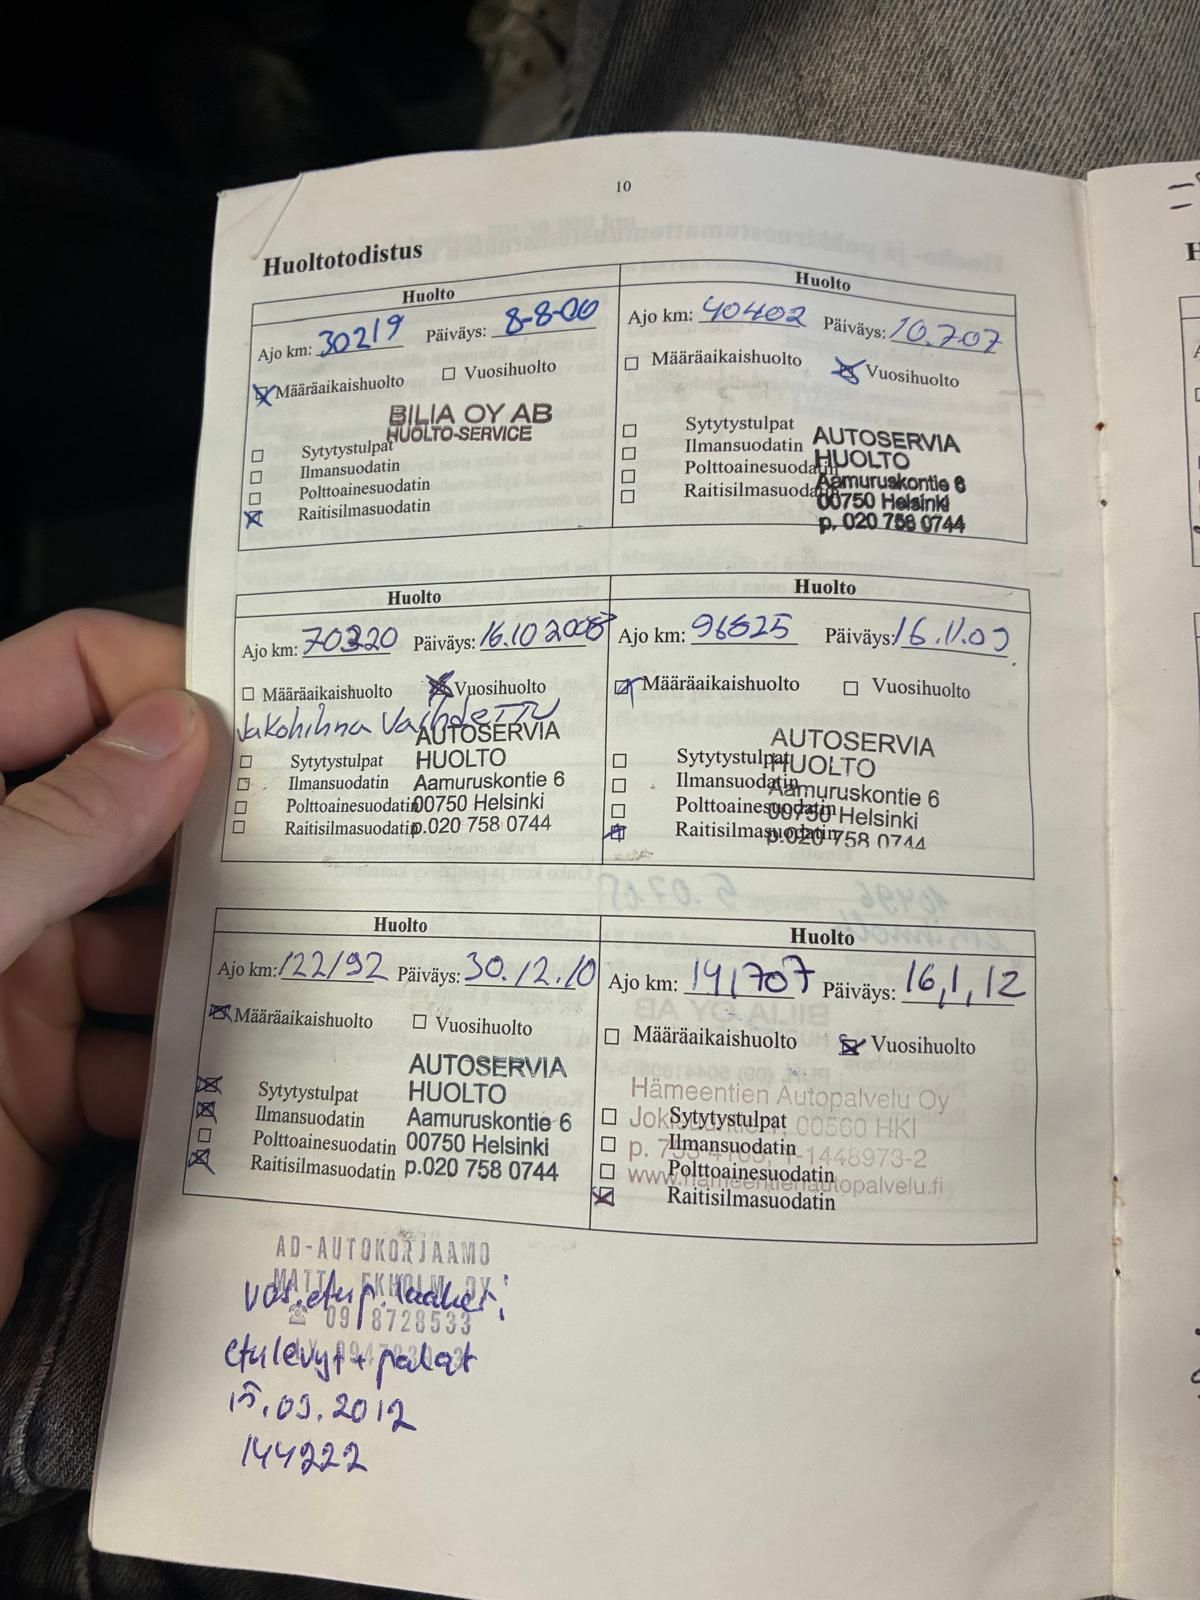 10
Huoltotodistus
Huolto
Ajo km: 30219 Päiväys: 8-8-00
Määräaikaishuolto Vuosihuolto
BILIA OY AB
HUOLTO-SERVICE
Sytytystulpat
Ilmansuodatin
Polttoainesuodatin
Raitisilmasuodatin
Huolto
Ajo km: 40402 Päiväys: 10.7.07
Määräaikaishuolto Vuosihuolto
Sytytystulpat
Ilmansuodatin
Polttoainesuodatin
Raitisilmasuodatin
AUTOSERVIA
HUOLTO
Aamuruskontie 6
00750 Helsinki
p. 020 758 0744
Huolto
Ajo km: 70320 Päiväys: 16.10 2008
Määräaikaishuolto Vuosihuolto
Jakohihna VaihdeTTU
Sytytystulpat
Ilmansuodatin
Polttoainesuodatin
Raitisilmasuodatin
AUTOSERVIA
HUOLTO
Aamuruskontie 6
00750 Helsinki
p.020 758 0744
Huolto
Ajo km: 96825 Päiväys: 16.11.09
Määräaikaishuolto Vuosihuolto
Sytytystulpat
Ilmansuodatin
Polttoainesuodatin
Raitisilmasuodatin
AUTOSERVIA
HUOLTO
Aamuruskontie 6
00750 Helsinki
p.020 758 0744
Huolto
Ajo km: 122192 Päiväys: 30.12.10
Määräaikaishuolto Vuosihuolto
Sytytystulpat
Ilmansuodatin
Polttoainesuodatin
Raitisilmasuodatin
AUTOSERVIA
HUOLTO
Aamuruskontie 6
00750 Helsinki
p.020 758 0744
Huolto
Ajo km: 141707 Päiväys: 16,1,12
Määräaikaishuolto Vuosihuolto
Hämeentien Autopalvelu Oy
00560 HKI
www.hameentienautopalvelu.fi
Sytytystulpat
Ilmansuodatin
Polttoainesuodatin
Raitisilmasuodatin
AD-AUTOKORJAAMO
EKHOLM OY
09 8728533
vas.etup.laakeri
etulevyt + palat
15.03.2012
144222